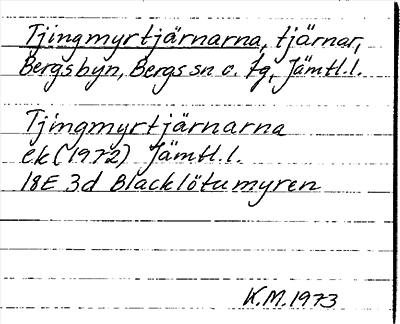 Tjingmyrtjärnarna, tjärnar,
Bergsbyn, Bergs sn o. tg, Jämtl.l.
Tjingmyrtjärnarna
ek (1972) Jämtl.l.
18E 3d Blacklötumyren
K.M.1973